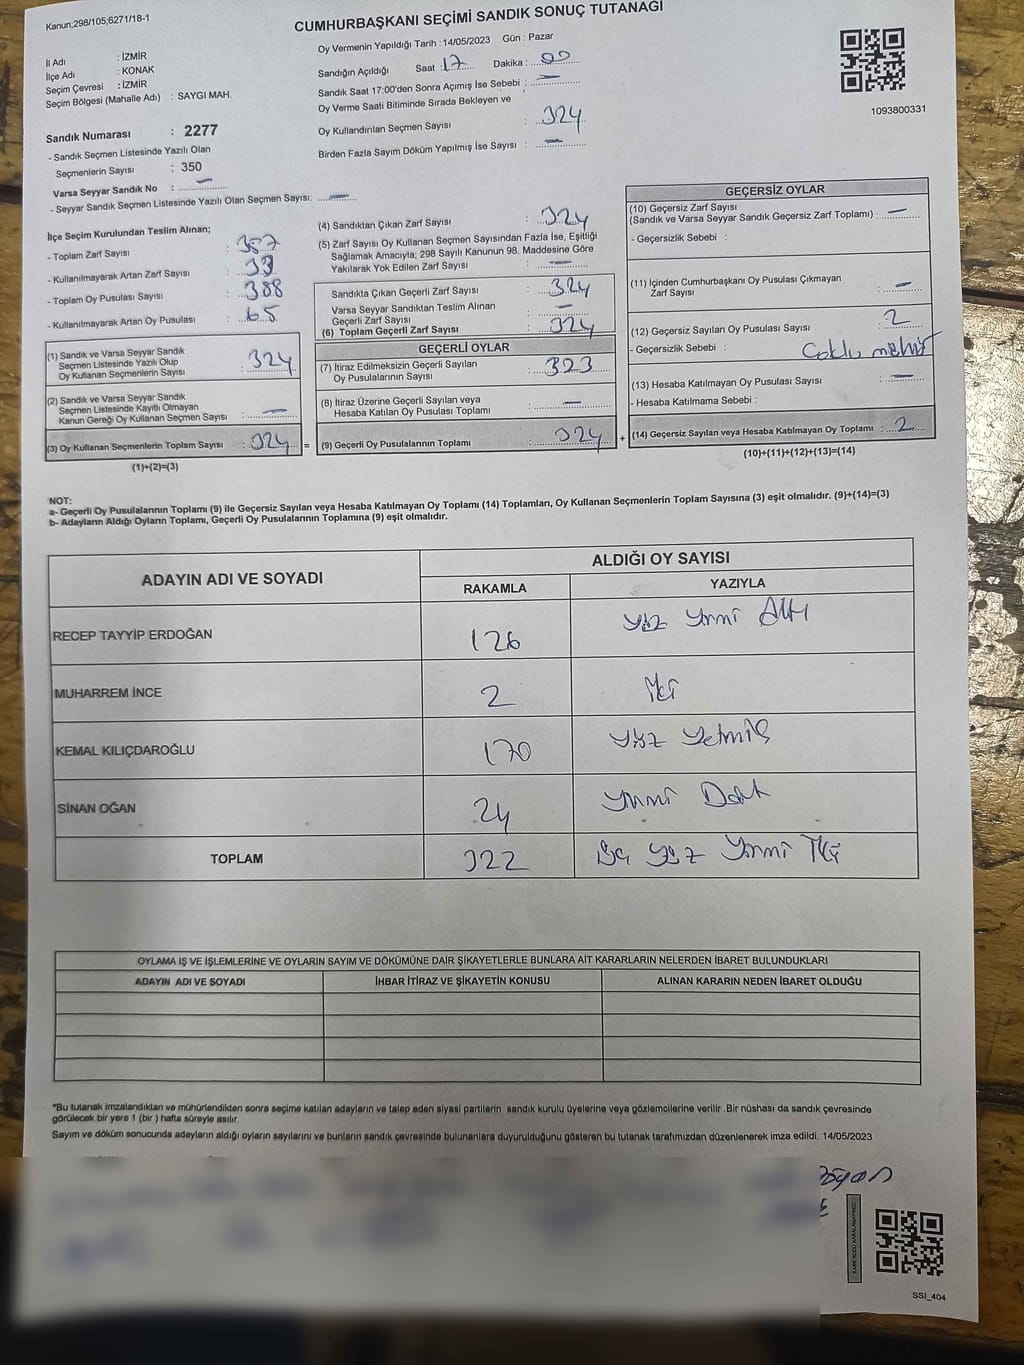 Kanun;298/105;6271/18-1
CUMHURBAŞKANI SEÇİMİ SANDIK SONUÇ TUTANAĞI
İl Adı : İZMİR
İlçe Adı : KONAK
Seçim Çevresi : İZMİR
Seçim Bölgesi (Mahalle Adı) : SAYGI MAH.
Oy Vermenin Yapıldığı Tarih : 14/05/2023 Gün : Pazar
Sandığın Açıldığı Saat : 17 Dakika : 00
Sandık Saat 17:00'den Sonra Açımış İse Sebebi : —
Oy Verme Saati Bitiminde Sırada Bekleyen ve
Oy Kullandırılan Seçmen Sayısı : 324
Birden Fazla Sayım Döküm Yapılmış İse Sayısı : —
1093800331
Sandık Numarası : 2277
- Sandık Seçmen Listesinde Yazılı Olan
Seçmenlerin Sayısı : 350
Varsa Seyyar Sandık No : —
- Seyyar Sandık Seçmen Listesinde Yazılı Olan Seçmen Sayısı: —
İlçe Seçim Kurulundan Teslim Alınan;
- Toplam Zarf Sayısı : 357
- Kullanılmayarak Artan Zarf Sayısı : 33
- Toplam Oy Pusulası Sayısı : 388
- Kullanılmayarak Artan Oy Pusulası : 65
(1) Sandık ve Varsa Seyyar Sandık
Seçmen Listesinde Yazılı Olup
Oy Kullanan Seçmenlerin Sayısı : 324
(2) Sandık ve Varsa Seyyar Sandık
Seçmen Listesinde Kayıtlı Olmayan
Kanun Gereği Oy Kullanan Seçmen Sayısı : —
(3) Oy Kullanan Seçmenlerin Toplam Sayısı : 324 =
(1)+(2)=(3)
(4) Sandıktan Çıkan Zarf Sayısı : 324
(5) Zarf Sayısı Oy Kullanan Seçmen Sayısından Fazla İse, Eşitliği
Sağlamak Amacıyla; 298 Sayılı Kanunun 98. Maddesine Göre
Yakılarak Yok Edilen Zarf Sayısı : —
Sandıkta Çıkan Geçerli Zarf Sayısı : 324
Varsa Seyyar Sandıktan Teslim Alınan
Geçerli Zarf Sayısı : —
(6) Toplam Geçerli Zarf Sayısı : 324
GEÇERLİ OYLAR
(7) İtiraz Edilmeksizin Geçerli Sayılan
Oy Pusulalarının Sayısı : 323
(8) İtiraz Üzerine Geçerli Sayılan veya
Hesaba Katılan Oy Pusulası Toplamı : —
(9) Geçerli Oy Pusulalarının Toplamı : 324 +
GEÇERSİZ OYLAR
(10) Geçersiz Zarf Sayısı
(Sandık ve Varsa Seyyar Sandık Geçersiz Zarf Toplamı) : —
- Geçersizlik Sebebi :
(11) İçinden Cumhurbaşkanı Oy Pusulası Çıkmayan
Zarf Sayısı : —
(12) Geçersiz Sayılan Oy Pusulası Sayısı : 2
- Geçersizlik Sebebi : Çoklu mühür
(13) Hesaba Katılmayan Oy Pusulası Sayısı : —
- Hesaba Katılmama Sebebi :
(14) Geçersiz Sayılan veya Hesaba Katılmayan Oy Toplamı : 2
(10)+(11)+(12)+(13)=(14)
NOT:
a- Geçerli Oy Pusulalarının Toplamı (9) ile Geçersiz Sayılan veya Hesaba Katılmayan Oy Toplamı (14) Toplamları, Oy Kullanan Seçmenlerin Toplam Sayısına (3) eşit olmalıdır. (9)+(14)=(3)
b- Adayların Aldığı Oyların Toplamı, Geçerli Oy Pusulalarının Toplamına (9) eşit olmalıdır.
ADAYIN ADI VE SOYADI ALDIĞI OY SAYISI
RAKAMLA YAZIYLA
RECEP TAYYİP ERDOĞAN 126 Yüz Yirmi Altı
MUHARREM İNCE 2 İki
KEMAL KILIÇDAROĞLU 170 Yüz Yetmiş
SİNAN OĞAN 24 Yirmi Dört
TOPLAM 322 Üç Yüz Yirmi İki
OYLAMA İŞ VE İŞLEMLERİNE VE OYLARIN SAYIM VE DÖKÜMÜNE DAİR ŞİKAYETLERLE BUNLARA AİT KARARLARIN NELERDEN İBARET BULUNDUKLARI
ADAYIN ADI VE SOYADI İHBAR İTİRAZ VE ŞİKAYETİN KONUSU ALINAN KARARIN NEDEN İBARET OLDUĞU
*Bu tutanak imzalandıktan ve mühürlendikten sonra seçime katılan adayların ve talep eden siyasi partilerin sandık kurulu üyelerine veya gözlemcilerine verilir .Bir nüshası da sandık çevresinde
görülecek bir yere 1 (bir ) hafta süreyle asılır.
Sayım ve döküm sonucunda adayların aldığı oyların sayılarını ve bunların sandık çevresinde bulunanlara duyurulduğunu gösteren bu tutanak tarafımızdan düzenlenerek imza edildi. 14/05/2023
KARE KODU KARALAMAYINIZ
SSI_404